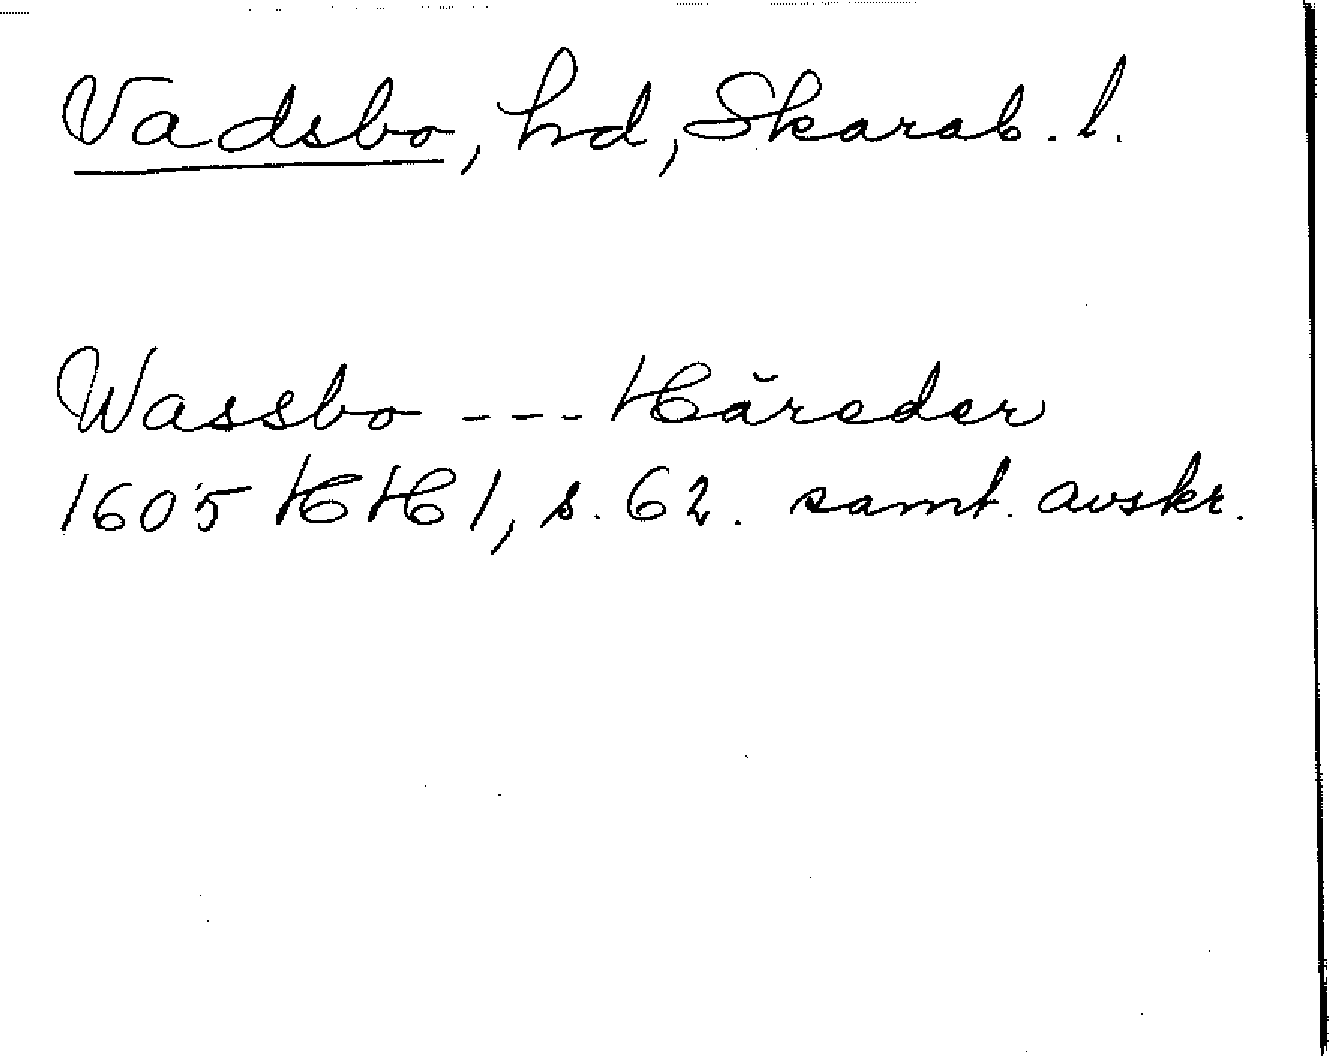 Vadsbo, hd, Skarab. l.
Wassbo --- Hăreder
1605 HH 1, s. 62. samt. avskr.